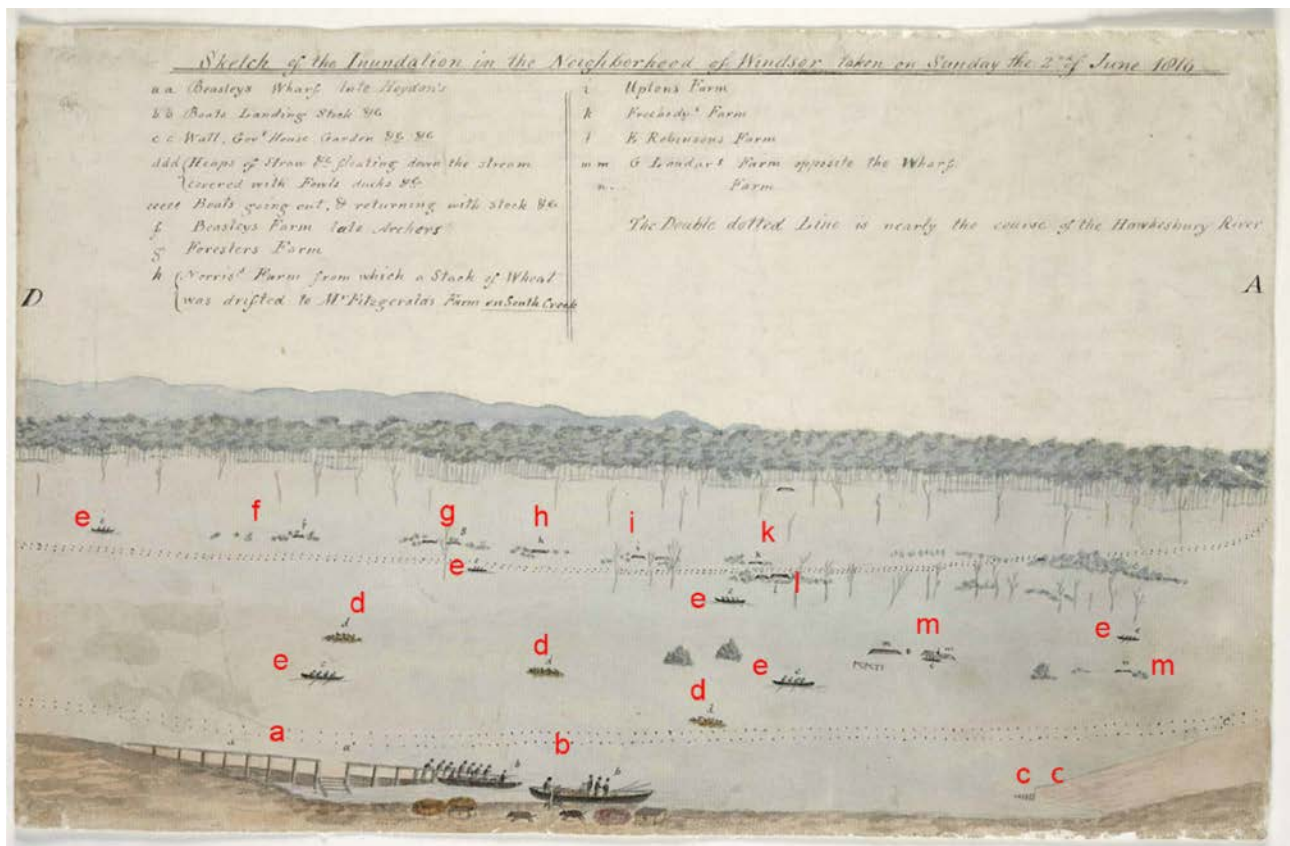 Sketch of the Inundation in the Neighborhood of Windsor taken on Sunday the 2nd of June 1816
a a Beasleys Wharf late Heydon's
b b Boats Landing Stock &c
c c Wall, Govt House Garden &c &c
ddd Heaps of Straw &c floating down the stream
covered with Fowls ducks &c
eeeee Boats going out, & returning with stock &c
f Beasleys Farm late Archers
g Foresters Farm
h Norris's Farm from which a Stack of Wheat
was drifted to Mr Fitzgeralds Farm on South Creek
i Uptons Farm
k Freebodys Farm
l R Robinsons Farm
m m G Loudars Farm opposite the Wharf
n. Farm
The Double dotted Line is nearly the course of the Hawkesbury River
D A
e f g h i k
e l
d e m e
e d e m
d
a b
c c